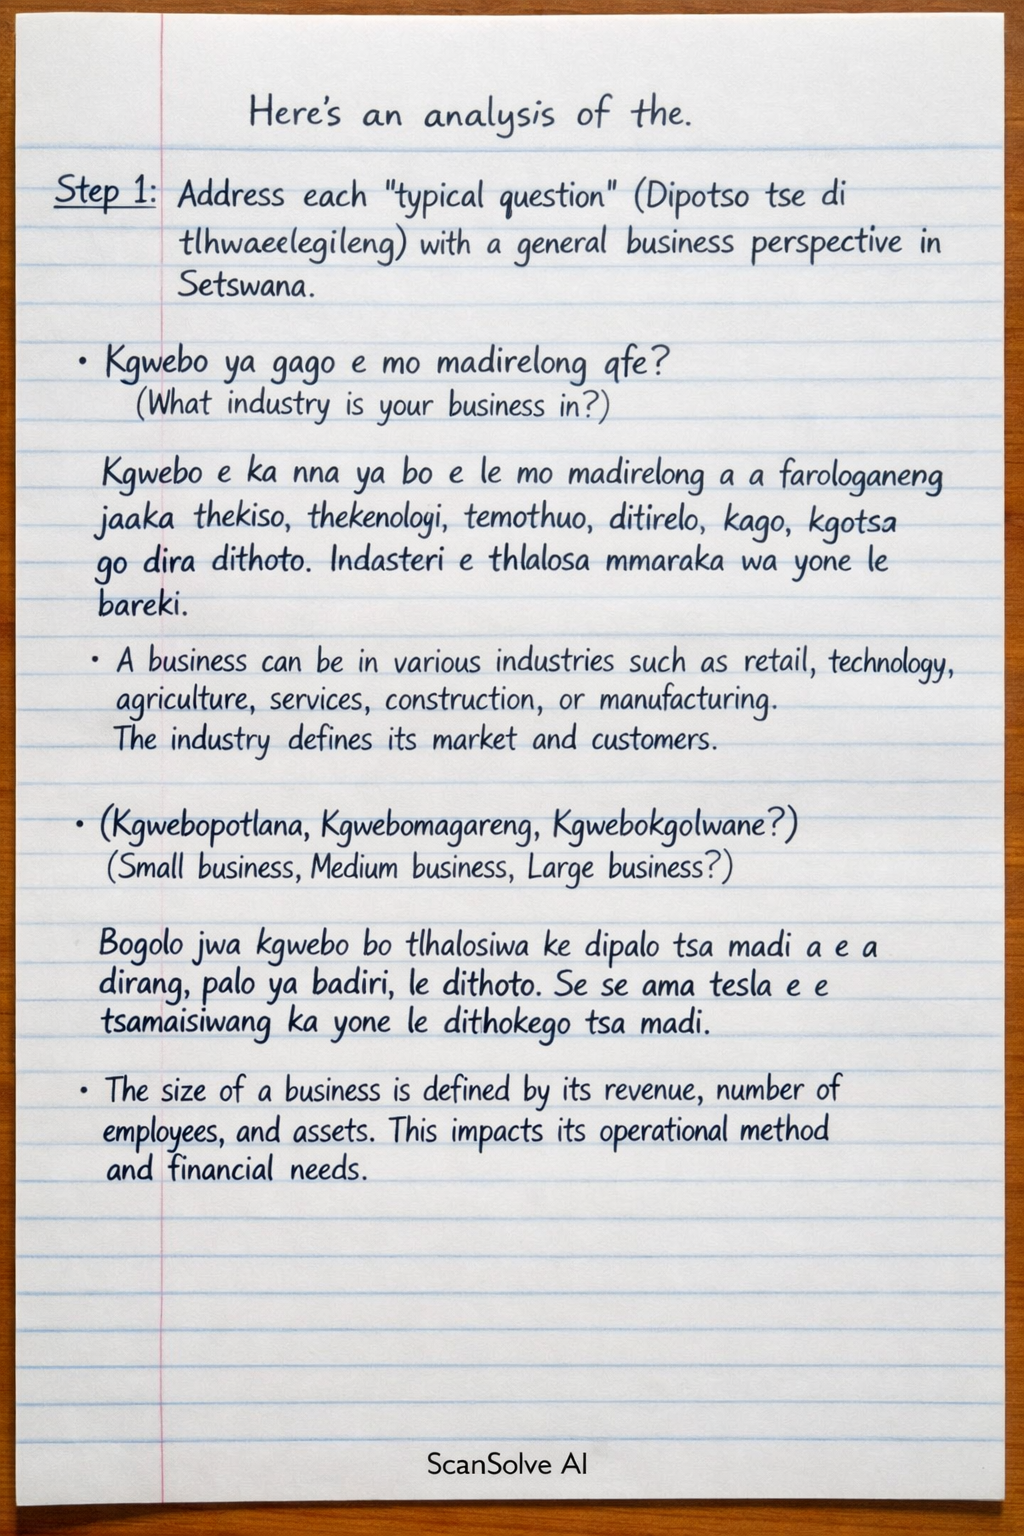 Here's an analysis of the.
Step 1: Address each "typical question" (Dipotso tse di
tlhwaeelegileng) with a general business perspective in
Setswana.
• Kgwebo ya gago e mo madirelong qfe?
(What industry is your business in?)
Kgwebo e ka nna ya bo e le mo madirelong a a farologaneng
jaaka thekiso, thekenologi, temothuo, ditirelo, kago, kgotsa
go dira dithoto. Indasteri e thlalosa mmaraka wa yone le
bareki.
• A business can be in various industries such as retail, technology,
agriculture, services, construction, or manufacturing.
The industry defines its market and customers.
• (Kgwebopotlana, Kgwebomagareng, Kgwebokgolwane?)
(Small business, Medium business, Large business?)
Bogolo jwa kgwebo bo tlhalosiwa ke dipalo tsa madi a e a
dirang, palo ya badiri, le dithoto. Se se ama tesla e e
tsamaisiwang ka yone le dithokego tsa madi.
• The size of a business is defined by its revenue, number of
employees, and assets. This impacts its operational method
and financial needs.
ScanSolve AI